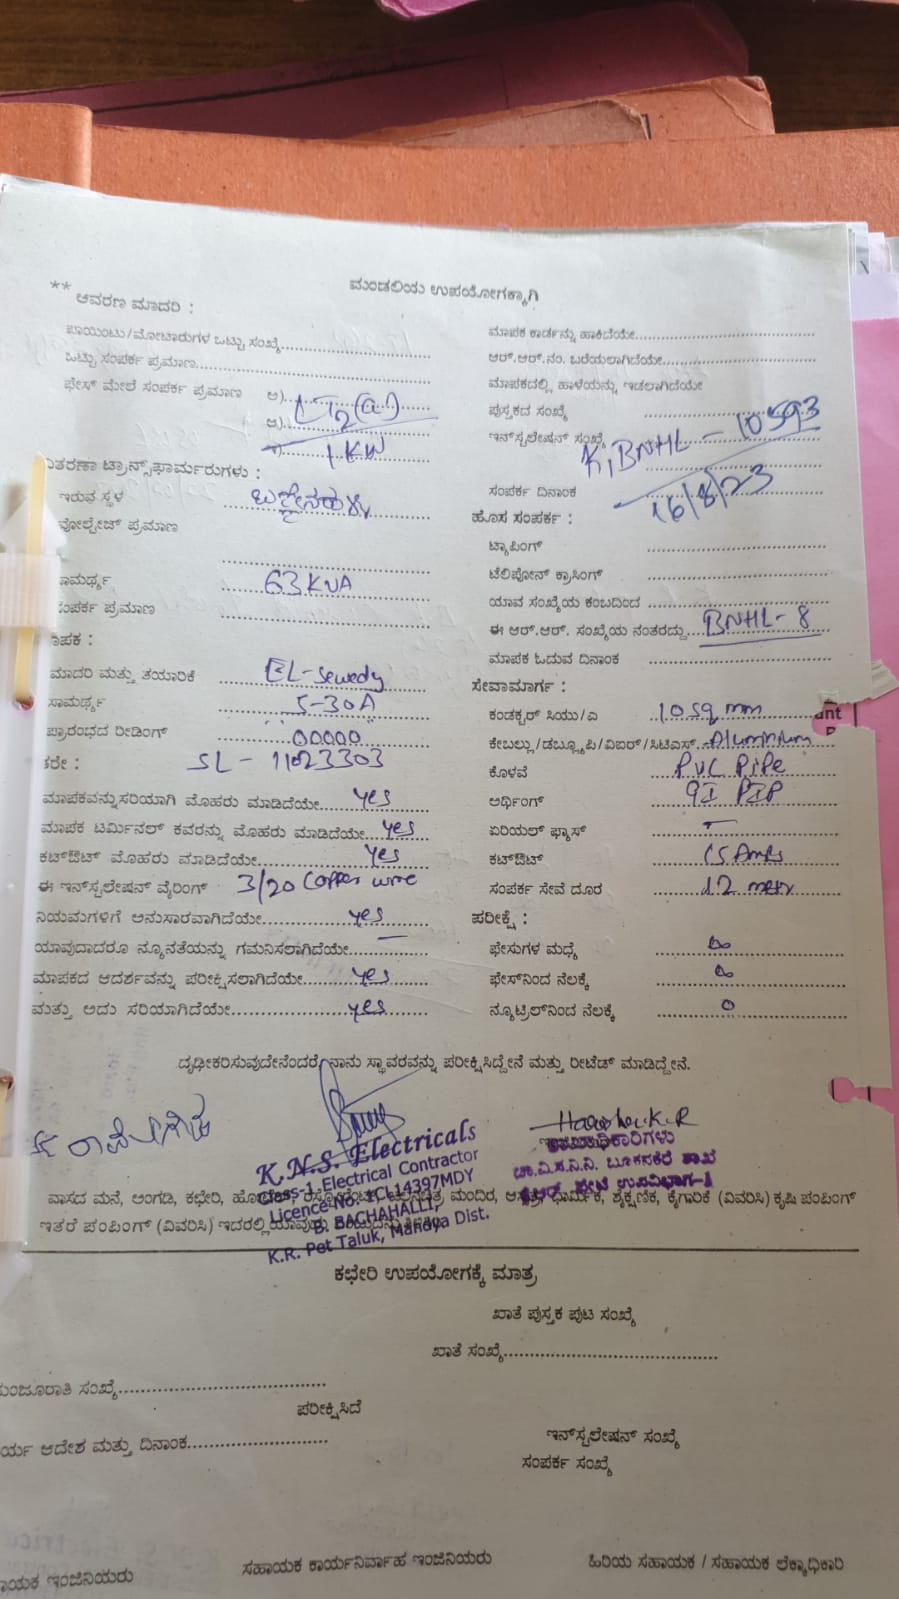 ಮಂಡಲಿಯ ಉಪಯೋಗಕ್ಕಾಗಿ
** ಆವರಣ ಮಾದರಿ :
ಪಾಯಿಂಟು/ಮೋಟಾರುಗಳ ಒಟ್ಟು ಸಂಖ್ಯೆ
ಒಟ್ಟು ಸಂಪರ್ಕ ಪ್ರಮಾಣ
ಫೇಸ್ ಮೇಲೆ ಸಂಪರ್ಕ ಪ್ರಮಾಣ ಅ) LT2(a)
ಆ)
1 KW
ವಿತರಣಾ ಟ್ರಾನ್ಸ್‌ಫಾರ್ಮರುಗಳು :
ಇರುವ ಸ್ಥಳ
ವೋಲ್ಟೇಜ್ ಪ್ರಮಾಣ
ಸಾಮರ್ಥ್ಯ 63 KVA
ಸಂಪರ್ಕ ಪ್ರಮಾಣ
ಮಾಪಕ :
ಮಾದರಿ ಮತ್ತು ತಯಾರಿಕೆ EL-Sewedy
ಸಾಮರ್ಥ್ಯ 5-30A
ಪ್ರಾರಂಭದ ರೀಡಿಂಗ್ 00000
ಕರೇ : SL - 11023303
ಮಾಪಕವನ್ನು ಸರಿಯಾಗಿ ಮೊಹರು ಮಾಡಿದೆಯೇ yes
ಮಾಪಕ ಟರ್ಮಿನಲ್ ಕವರನ್ನು ಮೊಹರು ಮಾಡಿದೆಯೇ yes
ಕಟ್‌ಔಟ್ ಮೊಹರು ಮಾಡಿದೆಯೇ yes
ಈ ಇನ್‌ಸ್ಟಲೇಷನ್ ವೈರಿಂಗ್ 3/20 Copper wire
ನಿಯಮಗಳಿಗೆ ಅನುಸಾರವಾಗಿದೆಯೇ yes
ಯಾವುದಾದರೂ ನ್ಯೂನತೆಯನ್ನು ಗಮನಿಸಲಾಗಿದೆಯೇ —
ಮಾಪಕದ ಆದರ್ಶವನ್ನು ಪರೀಕ್ಷಿಸಲಾಗಿದೆಯೇ yes
ಮತ್ತು ಅದು ಸರಿಯಾಗಿದೆಯೇ yes
ಮಾಪಕ ಕಾರ್ಡನ್ನು ಹಾಕಿದೆಯೇ
ಆರ್.ಆರ್.ನಂ. ಬರೆಯಲಾಗಿದೆಯೇ
ಮಾಪಕದಲ್ಲಿ ಹಾಳೆಯನ್ನು ಇಡಲಾಗಿದೆಯೇ
ಪುಸ್ತಕದ ಸಂಖ್ಯೆ
ಇನ್‌ಸ್ಟಲೇಷನ್ ಸಂಖ್ಯೆ K,BNHL - 10593
ಸಂಪರ್ಕ ದಿನಾಂಕ 16/8/23
ಹೊಸ ಸಂಪರ್ಕ :
ಟ್ಯಾಪಿಂಗ್
ಟೆಲಿಫೋನ್ ಕ್ರಾಸಿಂಗ್
ಯಾವ ಸಂಖ್ಯೆಯ ಕಂಬದಿಂದ
ಈ ಆರ್.ಆರ್. ಸಂಖ್ಯೆಯ ನಂತರದ್ದು BNHL - 8
ಮಾಪಕ ಓದುವ ದಿನಾಂಕ
ಸೇವಾಮಾರ್ಗ :
ಕಂಡಕ್ಟರ್ ಸಿಯು/ಎ 10 sq mm
ಕೇಬಲ್ಲು/ಡಬ್ಲ್ಯೂಪಿ/ವಿಐಆರ್/ಸಿಟಿಎಸ್ Aluminium
ಕೊಳವೆ PVC PiPe
ಅರ್ಥಿಂಗ್ GI PIP
ಏರಿಯಲ್ ಫ್ಯೂಸ್ —
ಕಟ್‌ಔಟ್ 15 Amps
ಸಂಪರ್ಕ ಸೇವೆ ದೂರ 12 metr
ಪರೀಕ್ಷೆ :
ಫೇಸುಗಳ ಮಧ್ಯೆ ∞
ಫೇಸ್‌ನಿಂದ ನೆಲಕ್ಕೆ ∞
ನ್ಯೂಟ್ರಲ್‌ನಿಂದ ನೆಲಕ್ಕೆ 0
ದೃಢೀಕರಿಸುವುದೇನೆಂದರೆ, ನಾನು ಸ್ಥಾವರವನ್ನು ಪರೀಕ್ಷಿಸಿದ್ದೇನೆ ಮತ್ತು ರೀಟೆಡ್ ಮಾಡಿದ್ದೇನೆ.
K.N.S. Electricals
Class-1 Electrical Contractor
Licence No. 1CL14397MDY
B. BACHAHALLI,
K.R. Pet Taluk, Mandya Dist.
ಚಾ.ವಿ.ಸ.ನಿ.ನಿ. ಬೂಕನಕೆರೆ ಶಾಖೆ
ಕೆ.ಆರ್. ಪೇಟೆ ಉಪವಿಭಾಗ-1
ವಾಸದ ಮನೆ, ಅಂಗಡಿ, ಕಛೇರಿ, ಮಂದಿರ, ಧಾರ್ಮಿಕ, ಶೈಕ್ಷಣಿಕ, ಕೈಗಾರಿಕೆ (ವಿವರಿಸಿ) ಕೃಷಿ ಪಂಪಿಂಗ್
ಇತರೆ ಪಂಪಿಂಗ್ (ವಿವರಿಸಿ) ಇದರಲ್ಲಿ
ಕಛೇರಿ ಉಪಯೋಗಕ್ಕೆ ಮಾತ್ರ
ಖಾತೆ ಪುಸ್ತಕ ಪುಟ ಸಂಖ್ಯೆ
ಖಾತೆ ಸಂಖ್ಯೆ
ಮಂಜೂರಾತಿ ಸಂಖ್ಯೆ
ಪರೀಕ್ಷಿಸಿದೆ
ಕಾರ್ಯ ಆದೇಶ ಮತ್ತು ದಿನಾಂಕ
ಇನ್‌ಸ್ಟಲೇಷನ್ ಸಂಖ್ಯೆ
ಸಂಪರ್ಕ ಸಂಖ್ಯೆ
ಸಹಾಯಕ ಇಂಜಿನಿಯರು ಸಹಾಯಕ ಕಾರ್ಯನಿರ್ವಾಹ ಇಂಜಿನಿಯರು ಹಿರಿಯ ಸಹಾಯಕ / ಸಹಾಯಕ ಲೆಕ್ಕಾಧಿಕಾರಿ